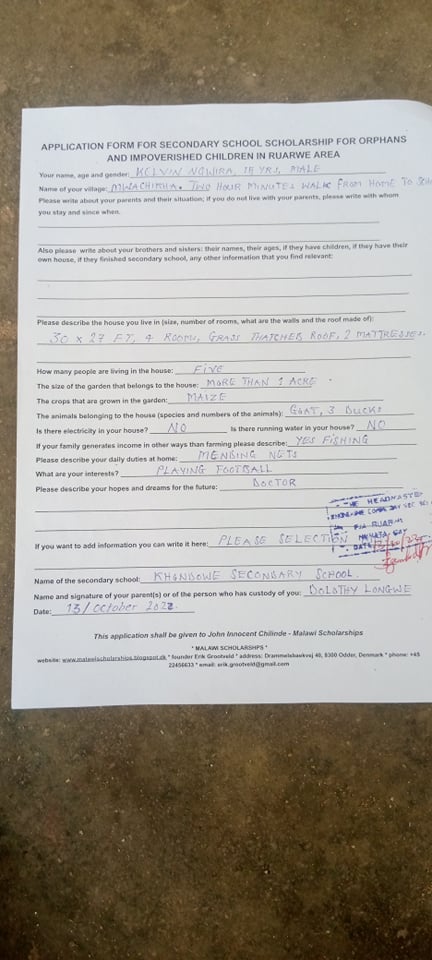 APPLICATION FORM FOR SECONDARY SCHOOL SCHOLARSHIP FOR ORPHANS
AND IMPOVERISHED CHILDREN IN RUARWE AREA
Your name, age and gender: KELVIN NGWIRA, 15 YRS, MALE
Name of your village: MWACHIKHA. TWO HOUR MINUTES WALK FROM HOME TO SCH
Please write about your parents and their situation; if you do not live with your parents, please write with whom
you stay and since when.
Also please write about your brothers and sisters: their names, their ages, if they have children, if they have their
own house, if they finished secondary school, any other information that you find relevant:
Please describe the house you live in (size, number of rooms, what are the walls and the roof made of):
30 x 27 FT, 4 ROOMS, GRASS THATCHED ROOF, 2 MATTRESSES.
How many people are living in the house: FIVE
The size of the garden that belongs to the house: MORE THAN 1 ACRE
The crops that are grown in the garden: MAIZE
The animals belonging to the house (species and numbers of the animals): GOAT, 3 DUCKS
Is there electricity in your house? NO Is there running water in your house? NO
If your family generates income in other ways than farming please describe: YES FISHING
Please describe your daily duties at home: MENDING NETS
What are your interests? PLAYING FOOTBALL
Please describe your hopes and dreams for the future: DOCTOR
THE HEADMASTER
COMM DAY SEC SC
P/A RUARWE
NKHATA BAY
DATE
If you want to add information you can write it here: PLEASE SELECTION
Name of the secondary school: KHONDOWE SECONDARY SCHOOL.
Name and signature of your parent(s) or of the person who has custody of you: DOLOTHY LONGWE
Date: 13/October 2022
This application shall be given to John Innocent Chilinde - Malawi Scholarships
* MALAWI SCHOLARSHIPS *
website: www.malawischolarships.blogspot.dk * founder Erik Grootveld * address: Drammelsbækvej 40, 8300 Odder, Denmark * phone: +45
22456633 * email: erik.grootveld@gmail.com